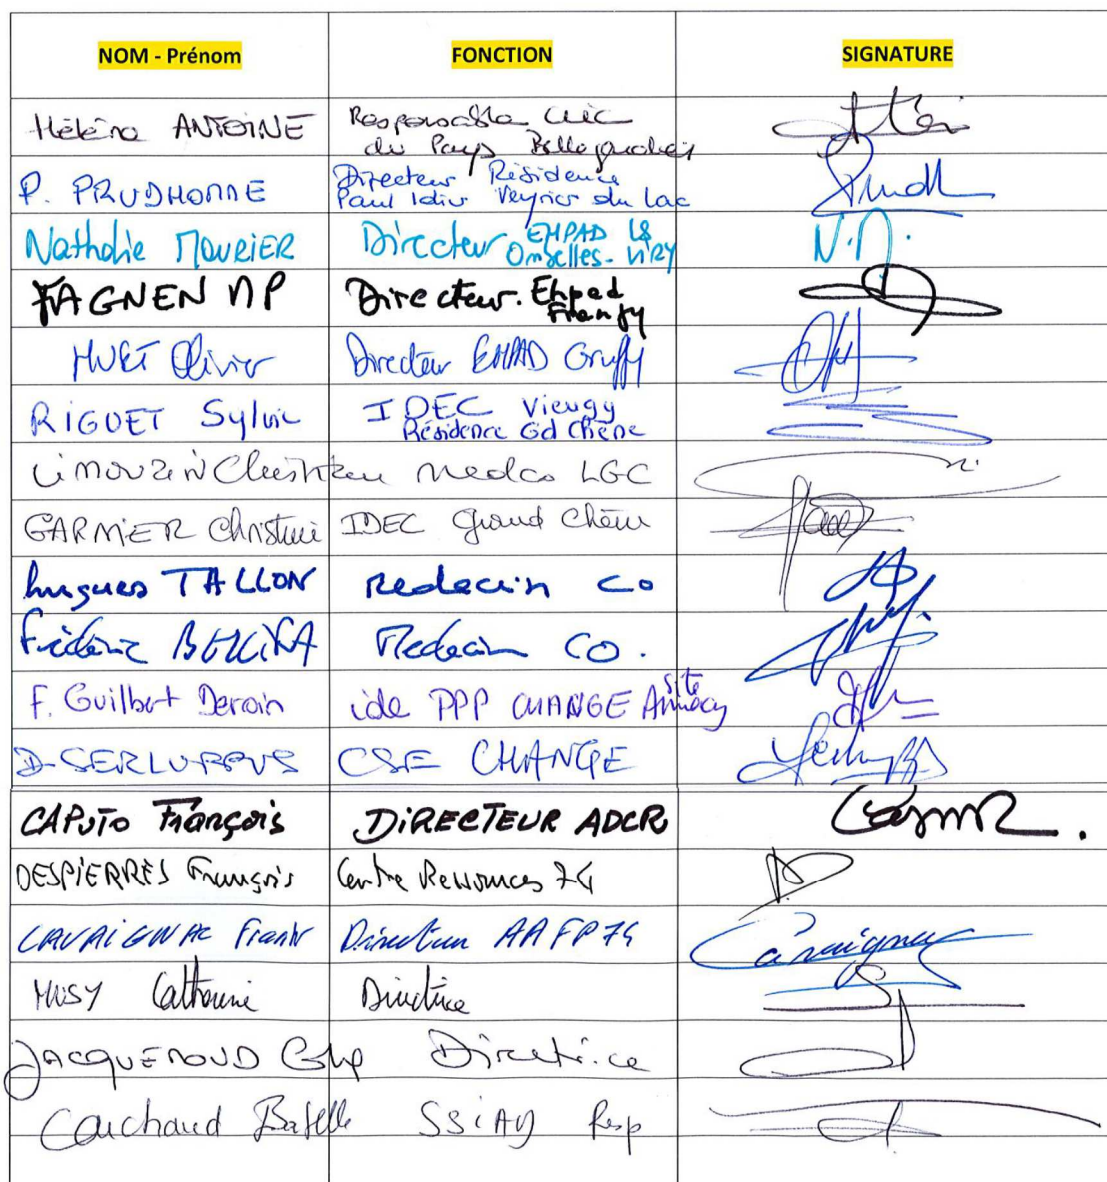 NOM - Prénom FONCTION SIGNATURE
Hélène ANTOINE Responsable CLIC
du Pays
P. PRUDHOMME Directeur Résidence
Paul Idier Veyrier du Lac
Nathalie MOURIER Directeur EHPAD les
Ombelles - VIRY N.M.
FAGNEN MP Directeur. Ehpad
Frangy
HUET Olivier Directeur EHPAD Gruffy
RIGUET Sylvie IDEC Vieugy
Résidence Gd Chêne
LIMOUZIN Christian Medco LGC
GARNIER Christine IDEC Grand Chêne
hugues TALLON Medecin Co
Frédéric Medecin CO.
F. Guilbert Derain ide PPP CHANGE site
Annecy
D. SERLUPPUS CSE CHANGE
CAPUTO François DIRECTEUR ADCR
DESPIERRES François Centre Ressources 74
CAVAIGNAC Directeur AAFP74 Cavaignac
MUSY Catherine Directrice
JACQUEMOUD Directrice
Cauchard SSIAD Resp